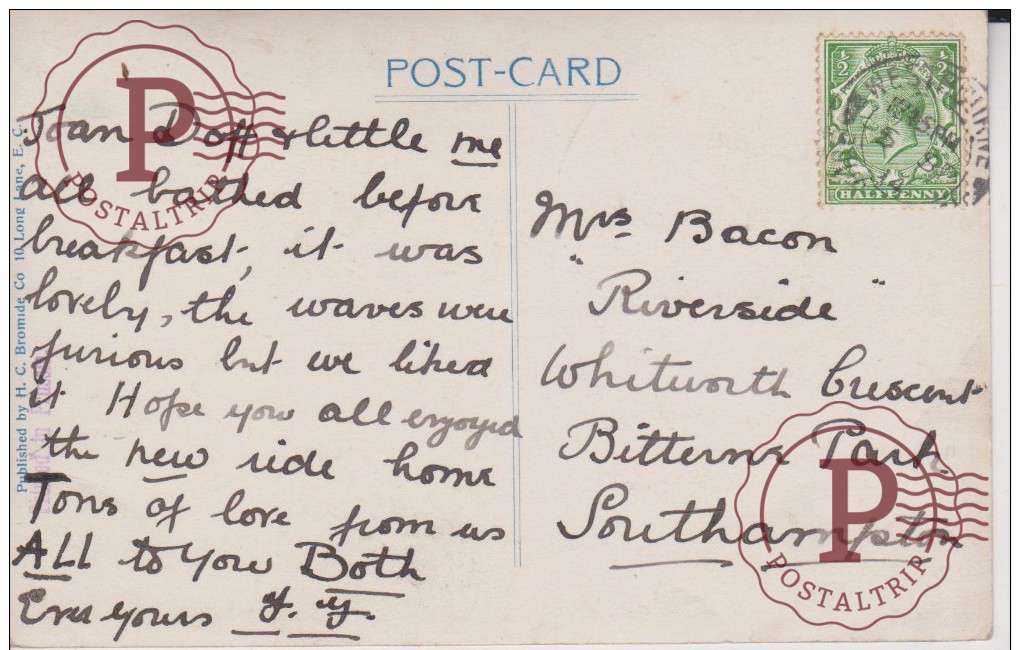 POST-CARD
Joan Doff & little me
all bathed before
breakfast, it was
lovely, the waves were
furious but we liked
it Hope you all enjoyed
the new ride home
Tons of love from us
ALL to You Both
Ever yours
Mrs Bacon
"Riverside"
Whitworth Crescent
Bitterne Park
Southampton
Published by H. C. Bromide Co 10 Long Lane, E. C.
1/2 1/2
HALFPENNY
P
POSTALTRIP
P
POSTALTRIP